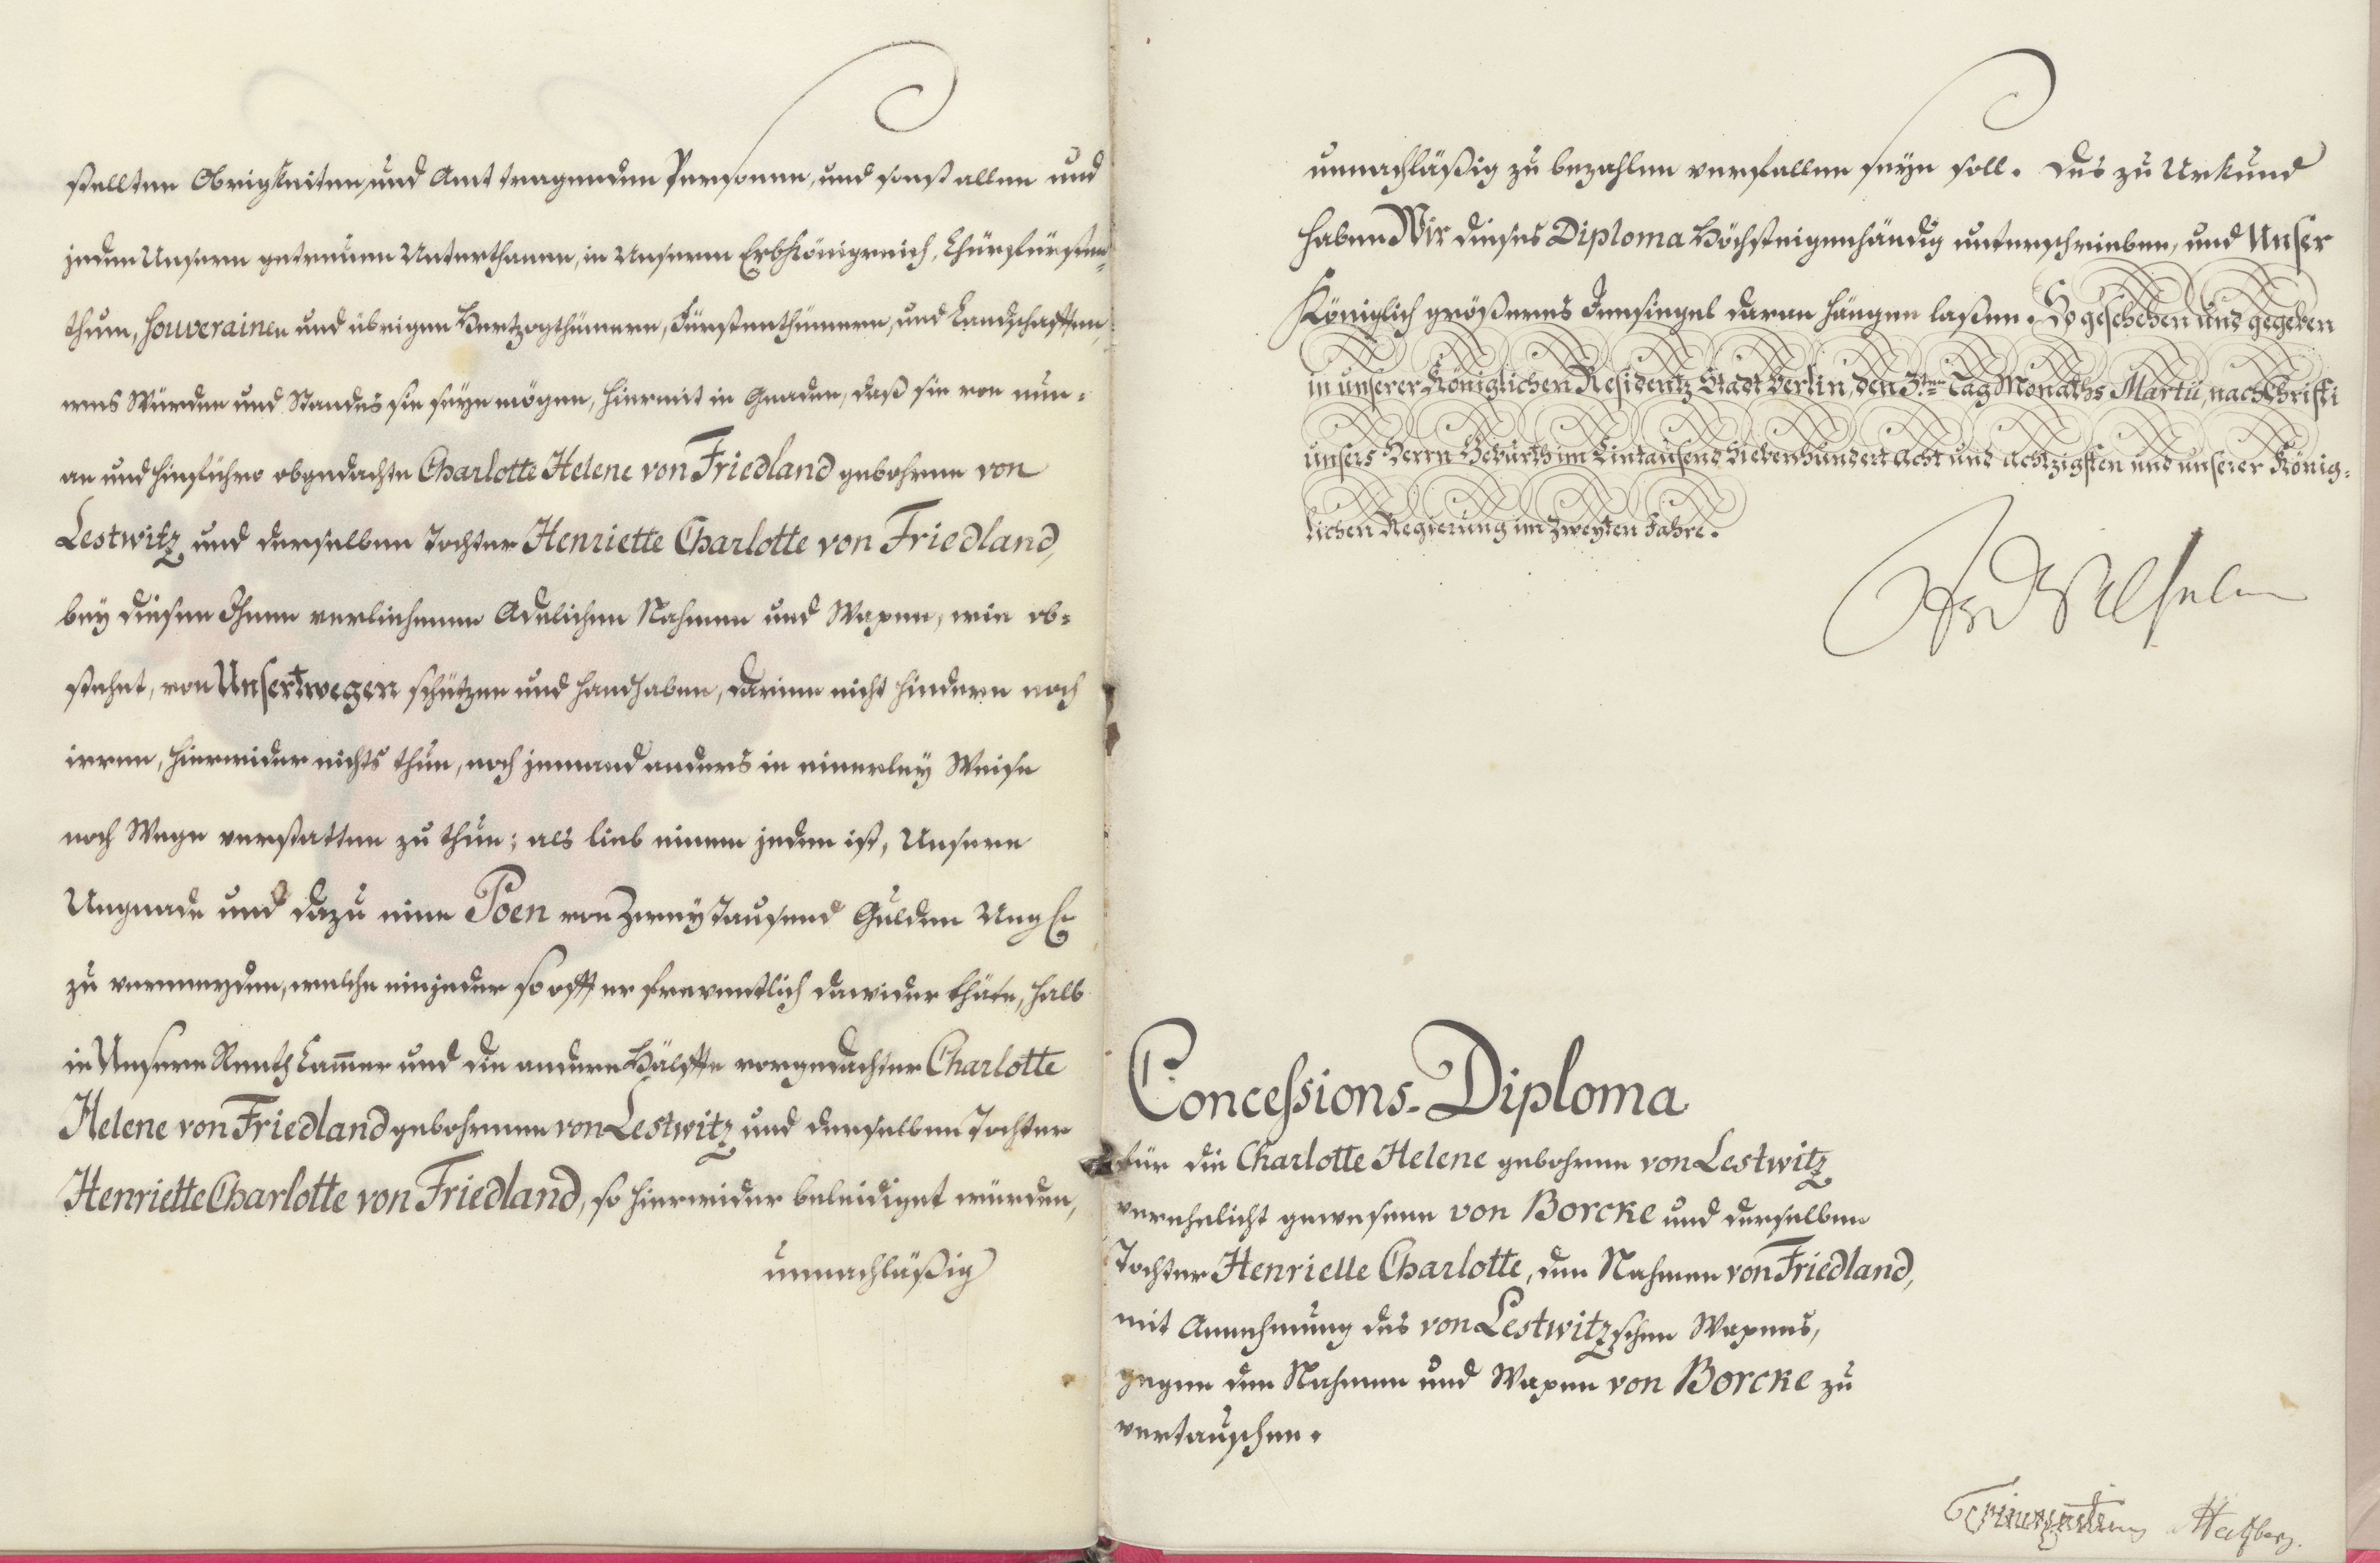 stellten Obrigkeiten, und Amt tragenden Personen, und sonst allen und
jeden Unsern getreuen Unterthanen, in Unserm Erbkönigreich, Churfürsten-
thum, souverainen und übrigen Hertzogthümern, Fürstenthümern, und Landschafften,
wes Würden und Standes sie seyn mögen, hiermit in Gnaden, daß sie von nun-
an und hinführo obgedachte Charlotte Helene von Friedland gebohrne von
Lestwitz und derselben Tochter Henriette Charlotte von Friedland,
bey diesen Ihnen verliehenen Adelichen Nahmen und Wapen, wie ob-
stehet, von Unsertwegen schützen und handhaben, darinn nicht hindern noch
irren, hierwider nichts thun, noch jemand anders in einerley Weise
noch Wege verstatten zu thun; als lieb einem jeden ist, Unsere
Ungnade und dazu eine Poen von Zwey Tausend Gulden Ungr.
zu vermeyden, welche ein jeder so offt er freventlich dawider thäte, halb
in Unsere Renth Cam̃er und die andere Hälffte vorgedachter Charlotte
Helene von Friedland gebohrnen von Lestwitz und derselben Tochter
Henriette Charlotte von Friedland, so hierwider beleidiget würden,
unnachläßig
unnachläßig zu bezahlen verfallen seyn soll. Des zu Urkund
haben Wir dieses Diploma Höchsteigenhändig unterschrieben, und Unser
Königlich größeres Innsiegel daran hängen laßen. So geschehen und gegeben
in unserer Königlichen Residentz Stadt Berlin, den 3ten Tag Monaths Martii, nach Christi
unsers Herrn Geburth im Eintausend Siebenhundert Acht und Achtzigsten und unserer König-
lichen Regierung im Zweyten Jahre.
FrdWilhelm
Concessions-Diploma
für die Charlotte Helene gebohrne von Lestwitz
verehelicht gewesene von Borcke und derselben
Tochter Henrielle Charlotte, den Nahmen von Friedland,
mit Annehmung des von Lestwitzschen Wapens,
gegen den Nahmen und Wapen von Borcke zu
vertauschen.
Hertzberg.